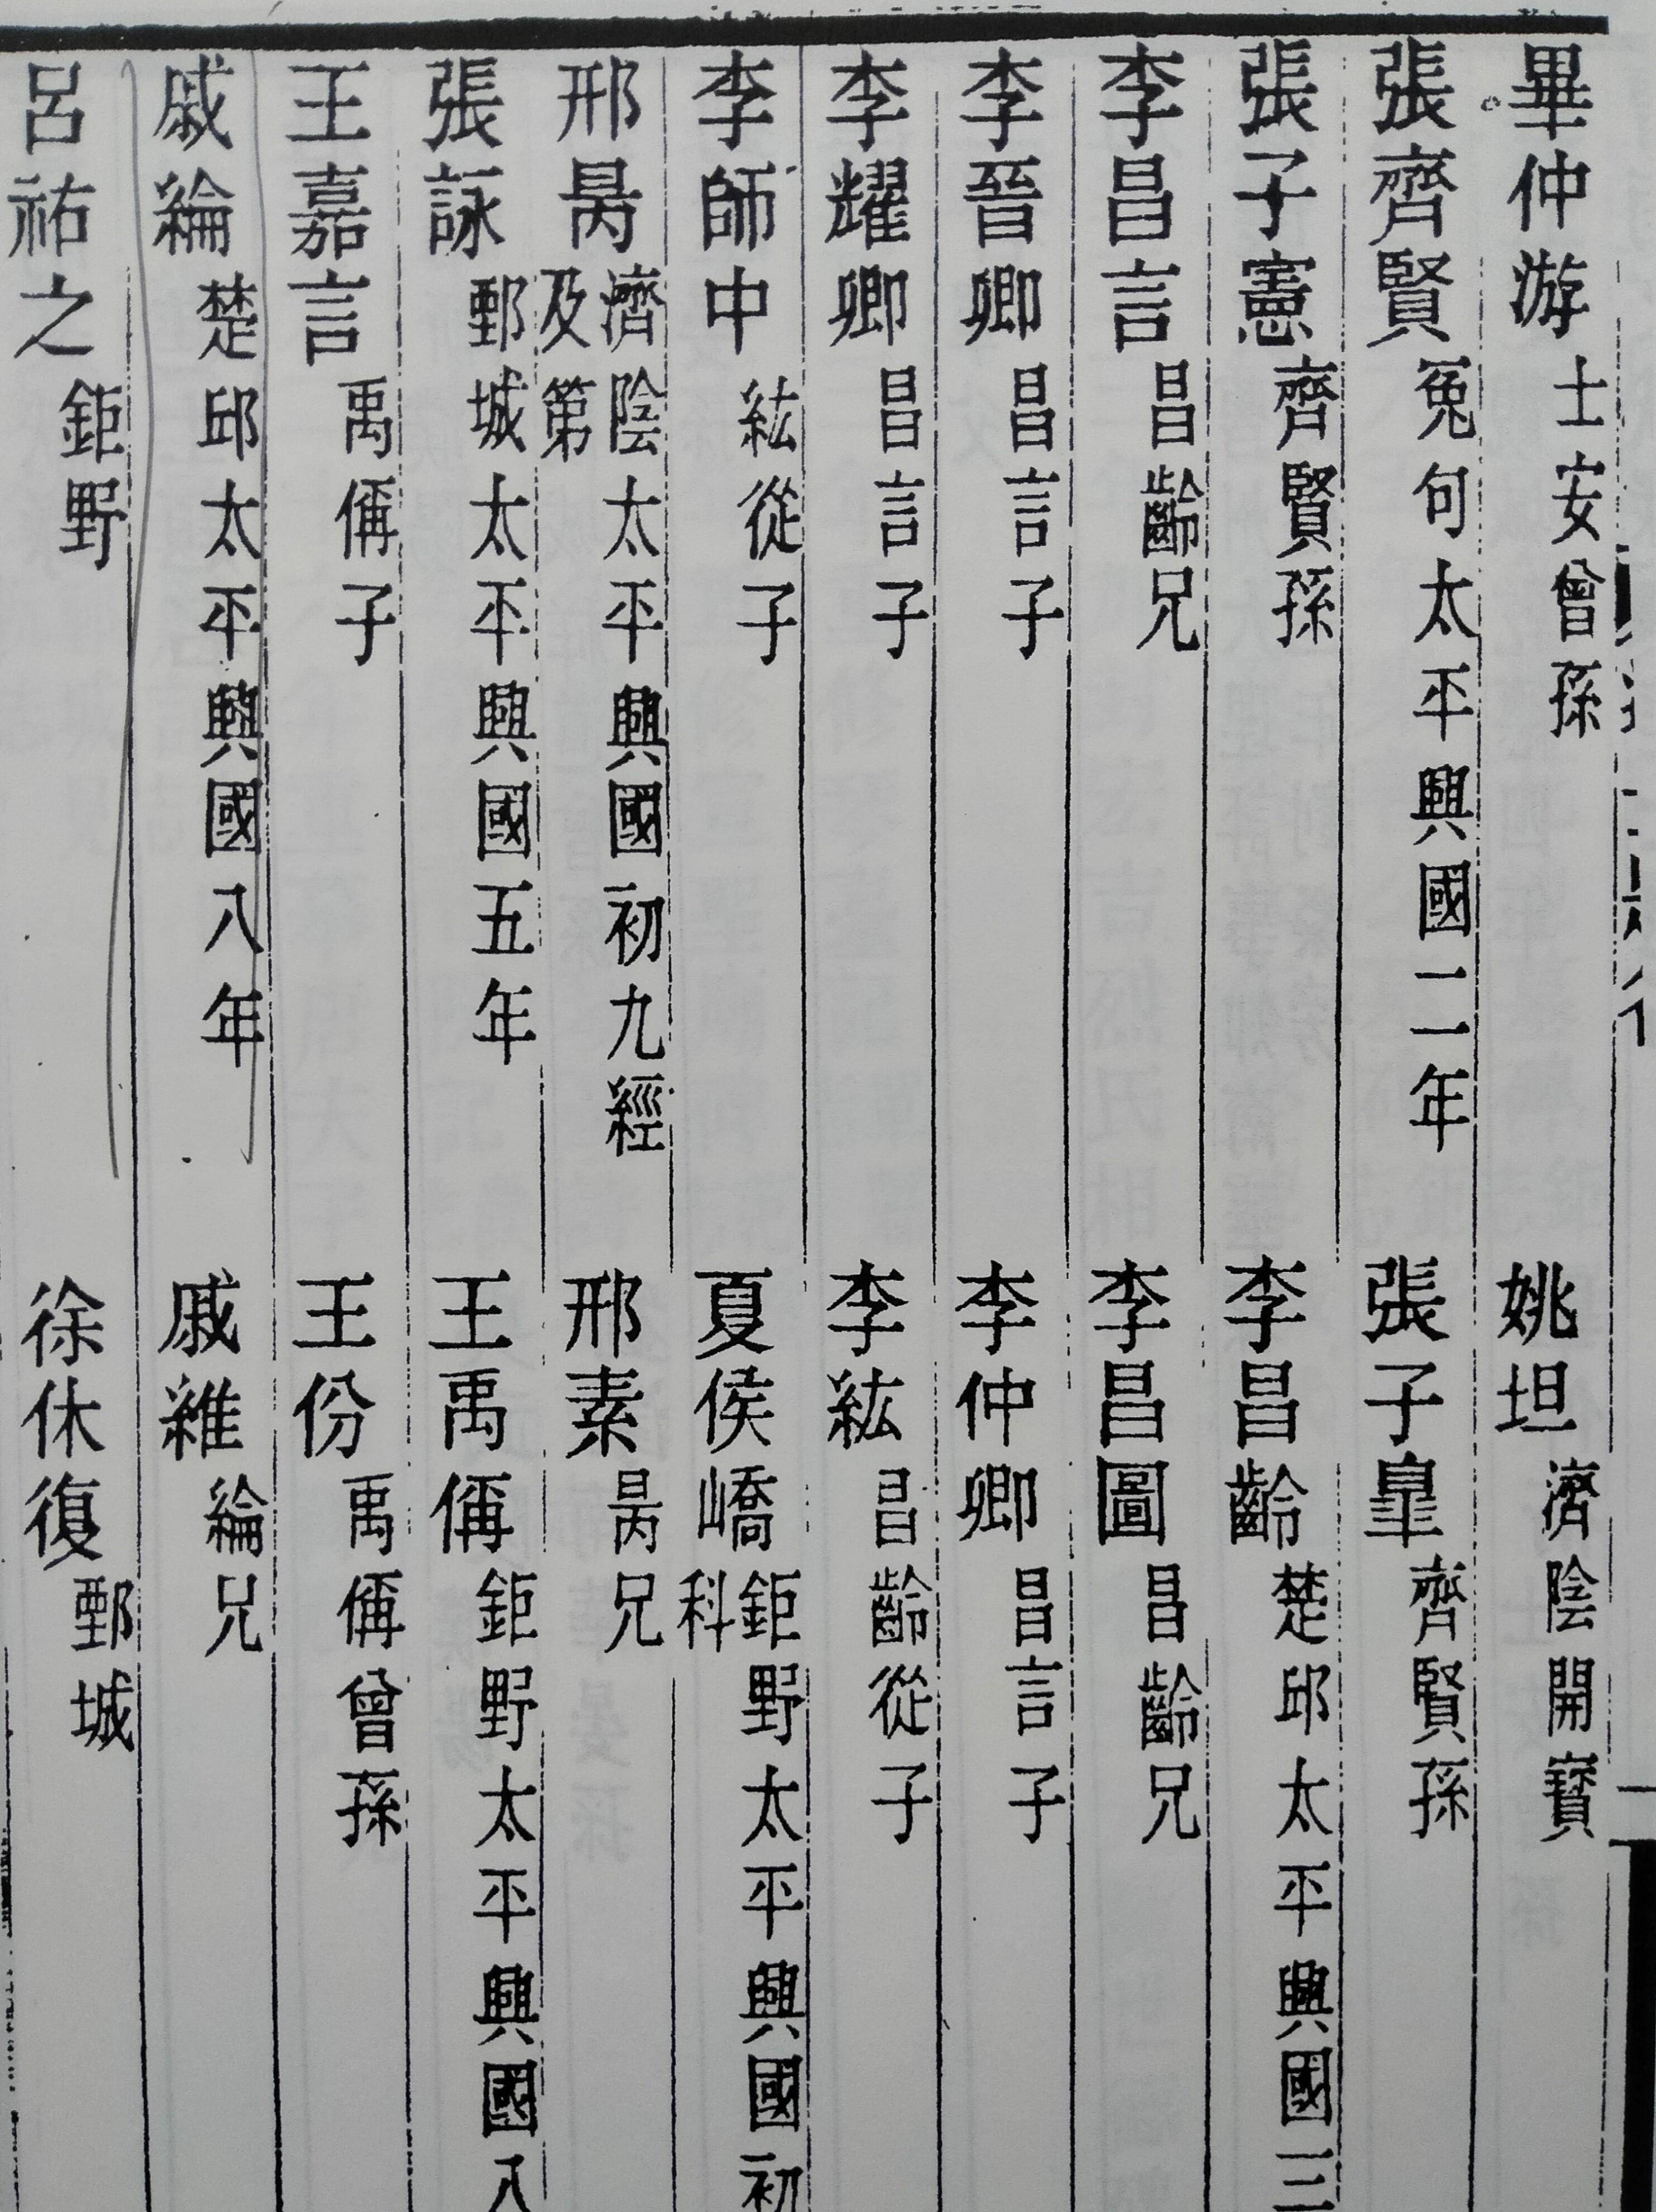 畢仲游 士安曾孫 姚坦 濟陰開寶
張齊賢 冤句太平興國二年 張子臯 齊賢孫
張子憲 齊賢孫 李昌齡 楚邱太平興國三
李昌言 昌齡兄 李昌圖 昌齡兄
李晉卿 昌言子 李仲卿 昌言子
李耀卿 昌言子 李紘 昌齡從子
李師中 紘從子 夏侯嶠 鉅野太平興國初 科
邢昺 濟陰太平興國初九經 及第 邢素 昺兄
張詠 鄄城太平興國五年 王禹偁 鉅野太平興國八
王嘉言 禹偁子 王份 禹偁曾孫
戚綸 楚邱太平興國八年 戚維 綸兄
呂祐之 鉅野 徐休復 鄄城